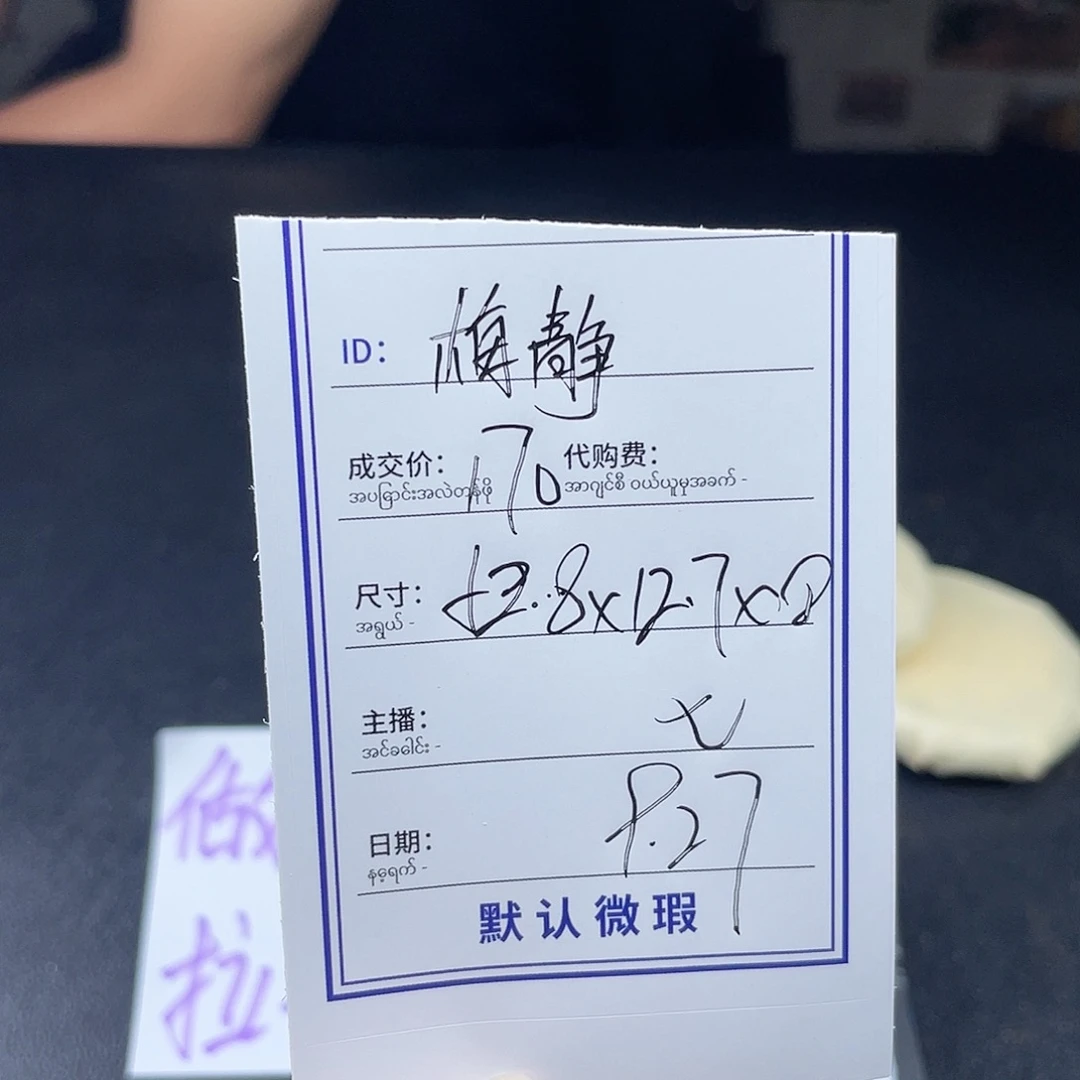 ID: 梅静
成交价: 170 代购费:
အပြောင်းအလဲတန်ဖိုး အာဂျင်စီ ဝယ်ယူမှုအခကြေး -
尺寸: 12.8x12.7x2
အရွယ် -
主播: 七
အင်ခေါင်း -
日期: 8.27
နေ့ရက် -
默认微瑕
做
拉